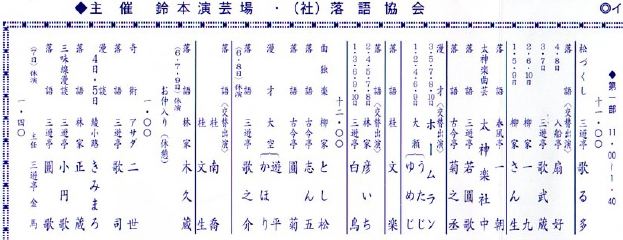 ◆主催 鈴本演芸場・(社)落語協会
◆第一部 11・00/1・40
十一・〇〇
松づくし 三遊亭 歌る多
落語〈交替出演〉
4・8日 入船亭 扇好
3・7日 三遊亭 歌武蔵
2・6・10日 柳家 一九
1・5・9日 柳家 さん生
落語 春風亭 一朝
太神楽曲芸 太神楽社中
落語 三遊亭 若圓歌
落語 古今亭 菊之丞
漫才〈交替出演〉
3・5・7・8・10日 ホームラン
1・2・4・6・9日 大瀬 うたじ ゆめじ
落語〈交替出演〉
2・4・5・7・10日 林家 彦いち
1・3・6・8・9日 三遊亭 白鳥
落語 桂 文楽
十二・〇〇
曲独楽 柳家 とし松
落語 古今亭 志ん五
落語 古今亭 圓菊
漫才 大空 遊平 かほり
落語 三遊亭 歌之介
(6・8日)休演
落語〈交替出演〉
桂 南喬
桂 文生
落語 林家 木久蔵
(6・7・9日)休演
お仲入り(休憩)
一・〇〇
奇術 アサダ二世
落語 三遊亭 歌司
漫談 綾小路 きみまろ
4日・5日
落語 林家 正蔵
三味線漫談 三遊亭 小円歌
落語 三遊亭 圓歌
(7日)休演 主任 三遊亭 金馬
一・四〇